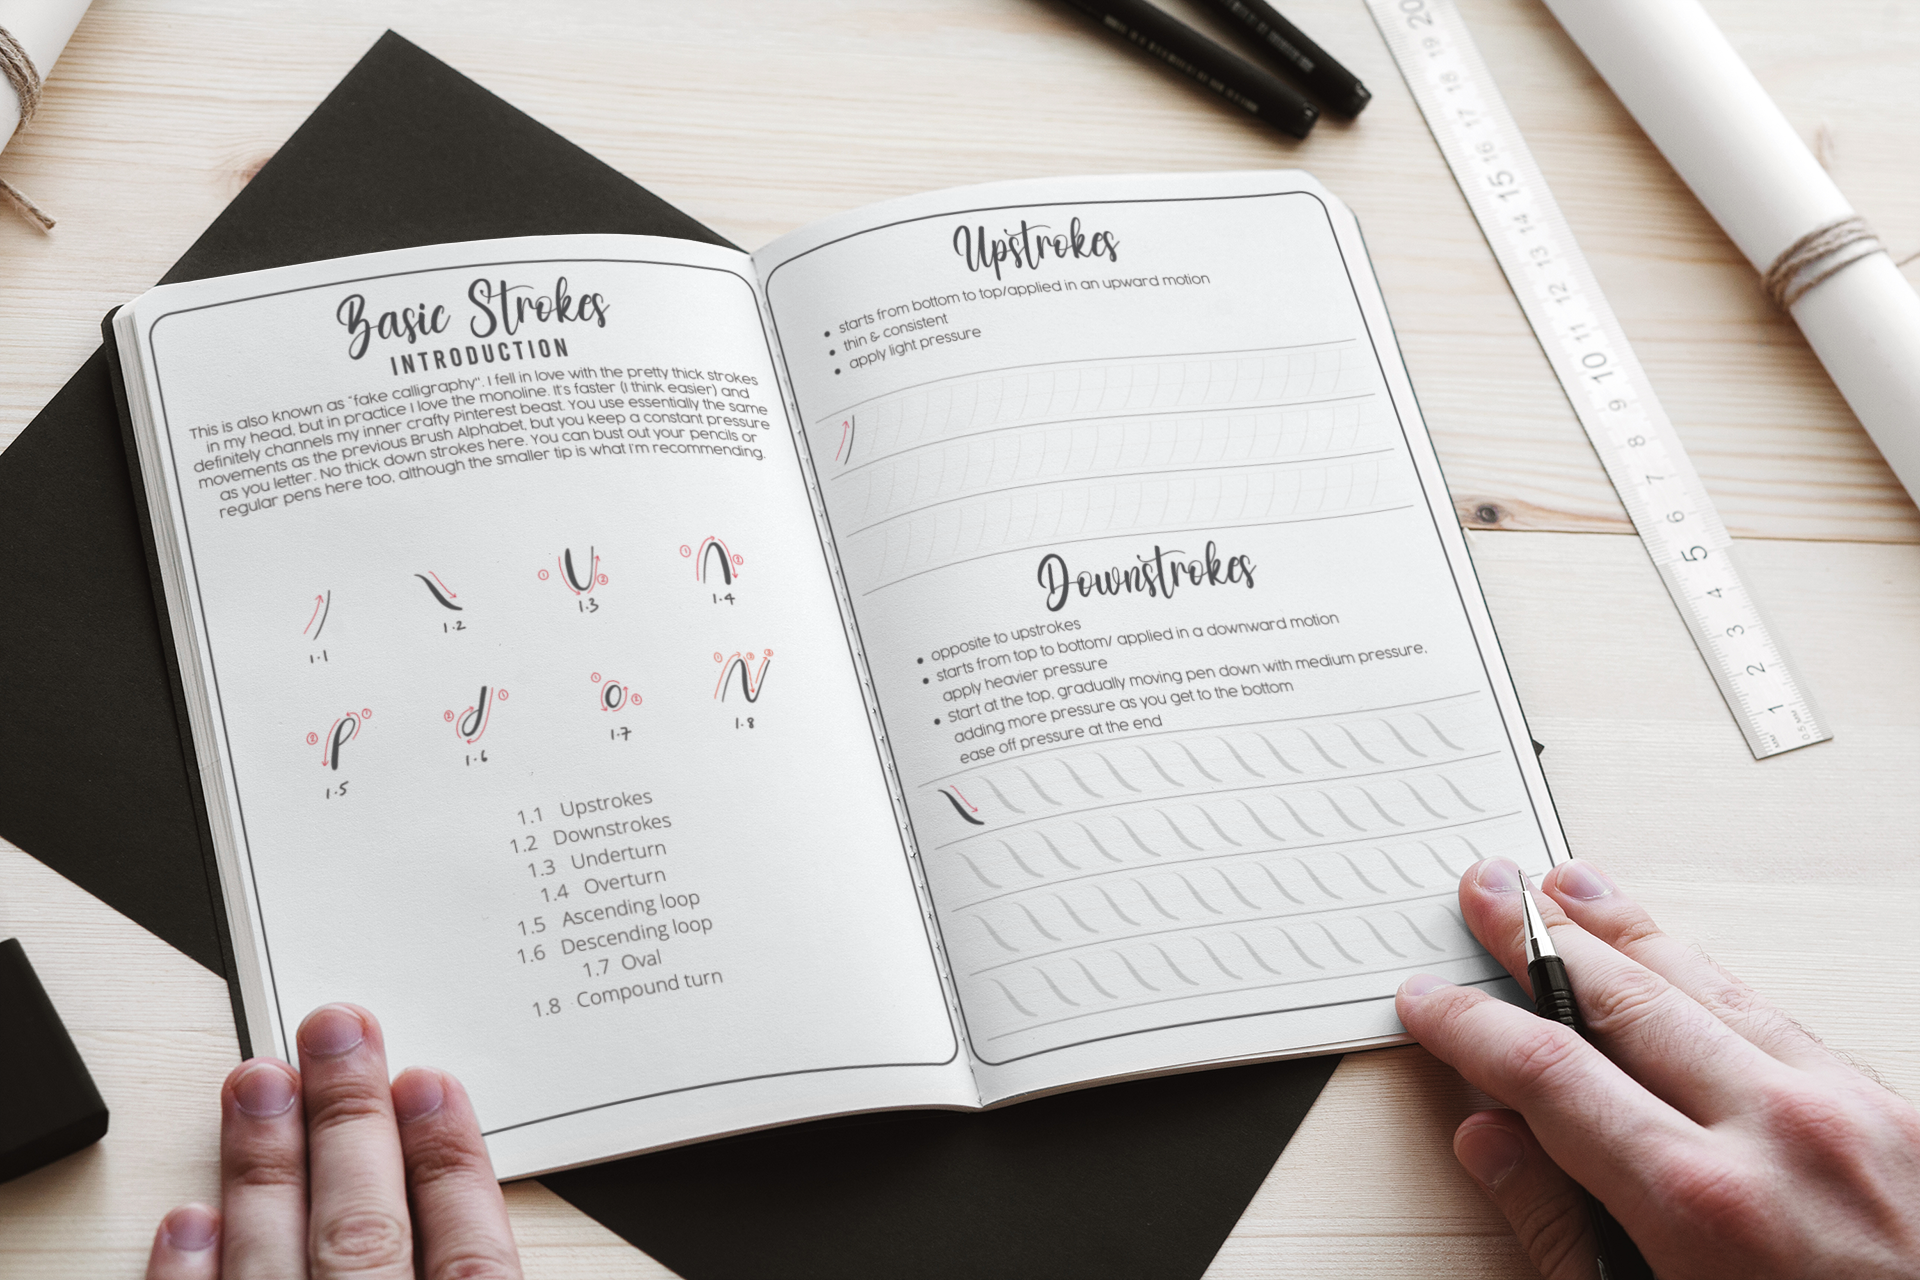 Basic Strokes
INTRODUCTION
This is also known as "fake calligraphy". I fell in love with the pretty thick strokes
in my head, but in practice I love the monoline. It's faster (I think easier) and
definitely channels my inner crafty Pinterest beast. You use essentially the same
movements as the previous Brush Alphabet, but you keep a constant pressure
as you letter. No thick down strokes here. You can bust out your pencils or
regular pens here too, although the smaller tip is what I'm recommending.
1.1
1.2
1.3
1.4
1.5
1.6
1.7
1.8
1.1 Upstrokes
1.2 Downstrokes
1.3 Underturn
1.4 Overturn
1.5 Ascending loop
1.6 Descending loop
1.7 Oval
1.8 Compound turn
Upstrokes
• starts from bottom to top/applied in an upward motion
• thin & consistent
• apply light pressure
Downstrokes
• opposite to upstrokes
• starts from top to bottom/ applied in a downward motion
apply heavier pressure
• start at the top, gradually moving pen down with medium pressure,
adding more pressure as you get to the bottom
ease off pressure at the end
20 19 18 17 16 15 14 13 12 11 10 9 8 7 6 5 4 3 2 1
MM
0.5 MM